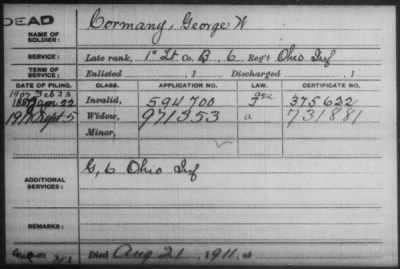 DEAD
NAME OF SOLDIER: Cormany, George W
SERVICE: Late rank, 1st Lt Co. B, 6 Reg't Ohio Inf
TERM OF SERVICE: Enlisted , 1 Discharged , 1
DATE OF FILING. CLASS. APPLICATION NO. LAW. CERTIFICATE NO.
1907 Feb 23
Jan 22 Invalid, 594700 375622
Sept 5 Widow, 971353 a 731881
Minor,
ADDITIONAL SERVICES: G, 6 Ohio Inf
REMARKS:
Died Aug 21, 1911, at